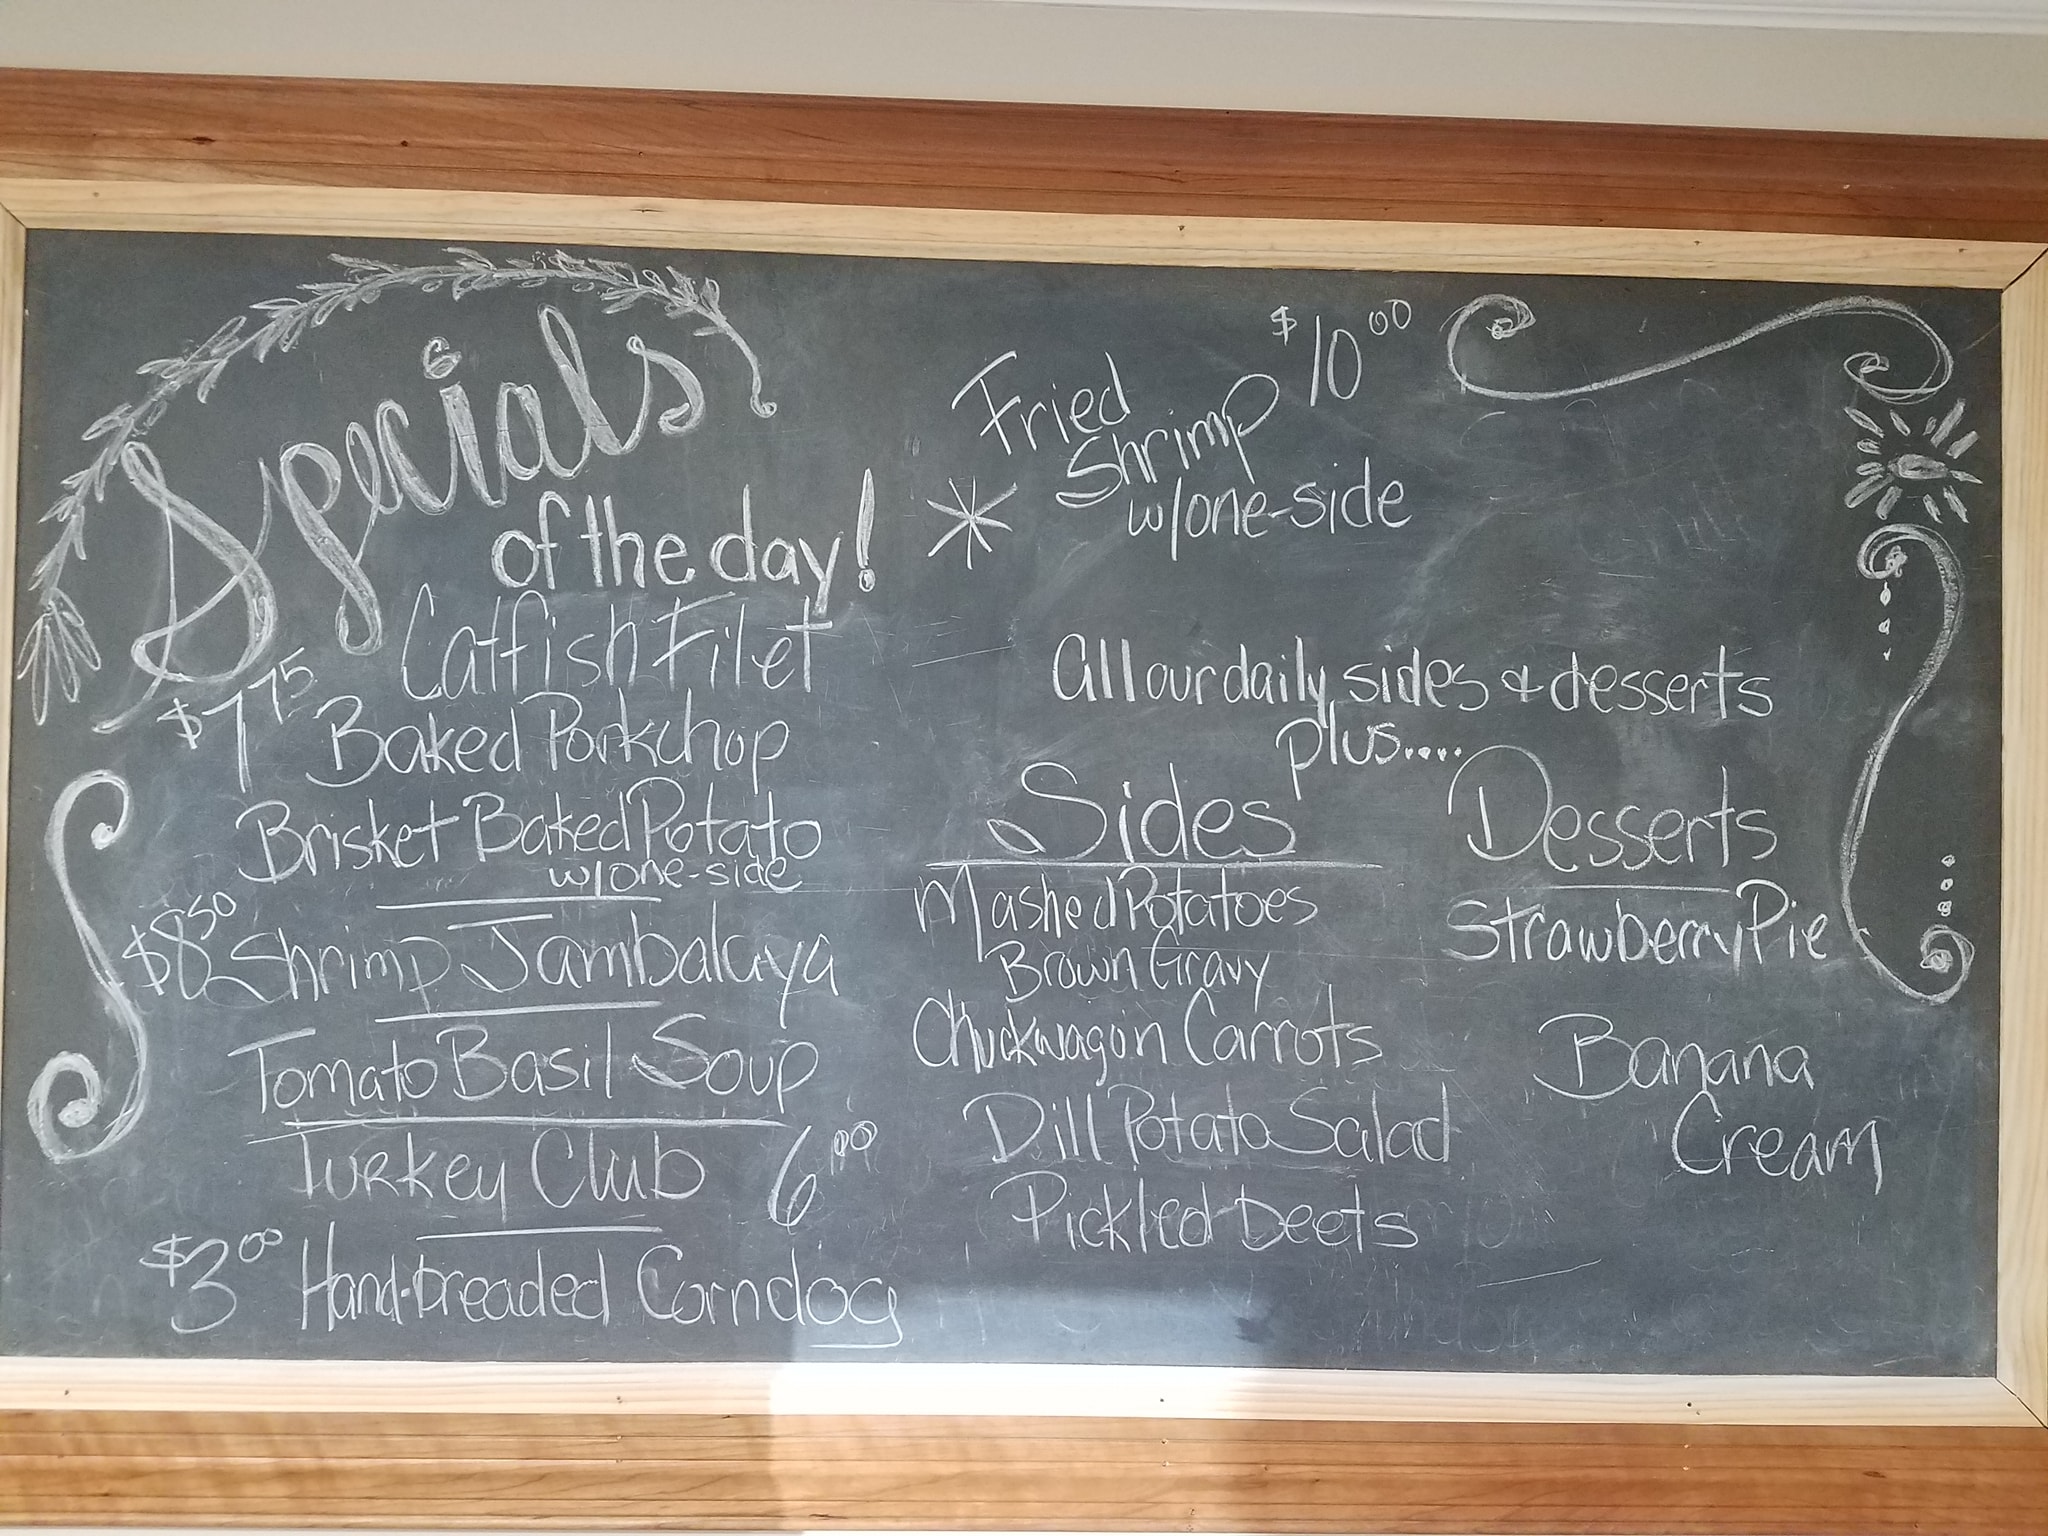 Specials
of the day!
Catfish Filet
$7 75 Baked Porkchop
Brisket Baked Potato
w/one-side
$8 50 Shrimp Jambalaya
Tomato Basil Soup
Turkey Club 6 00
$3 00 Hand-breaded Corndog
$10 00
Fried
Shrimp
w/one-side
All our daily sides & desserts
plus....
Sides
Mashed Potatoes
Brown Gravy
Chuckwagon Carrots
Dill Potato Salad
Pickled Beets
Desserts
Strawberry Pie
Banana
Cream